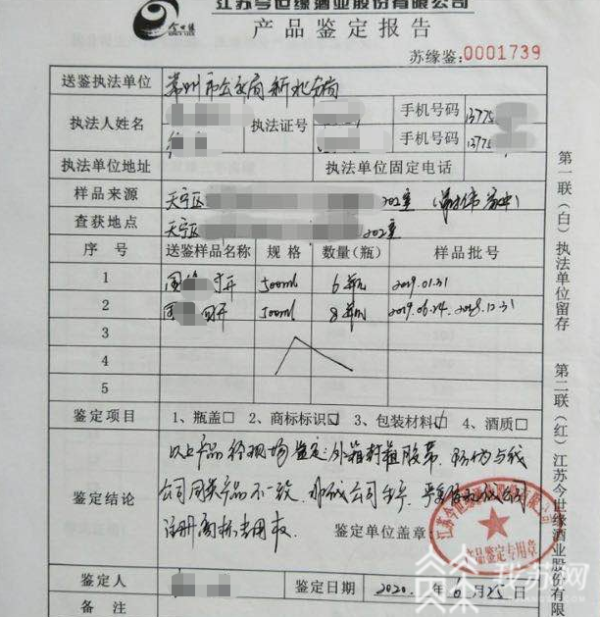 今世缘
江苏今世缘酒业股份有限公司
产品鉴定报告
苏缘鉴:0001739
送鉴执法单位 常州市公安局新北分局
执法人姓名 执法证号 手机号码 13775
手机号码 13775
执法单位地址 执法单位固定电话
样品来源 天宁区 202室
查获地点 天宁区 202室
序号 送鉴样品名称 规格 数量(瓶) 样品批号
1 国 开 500ml 6瓶 2019.01.31
2 国 四开 500ml 8瓶 2019.06.24. 2018.12.31
3
4
5
鉴定项目 1、瓶盖□ 2、商标标识☑ 3、包装材料☑ 4、酒质□
以上产品经现场鉴定:外箱封箱胶带、 与我
鉴定结论 公司同类产品不一致,非我公司生产,严重侵犯我公司
注册商标专用权
鉴定单位盖章:
江苏今世缘酒业股份有限公司
产品鉴定专用章
鉴定人 鉴定日期 2020年6月25日
备注
第一联(白)执法单位留存
第二联(红)江苏今世缘酒业股份有限
我苏网